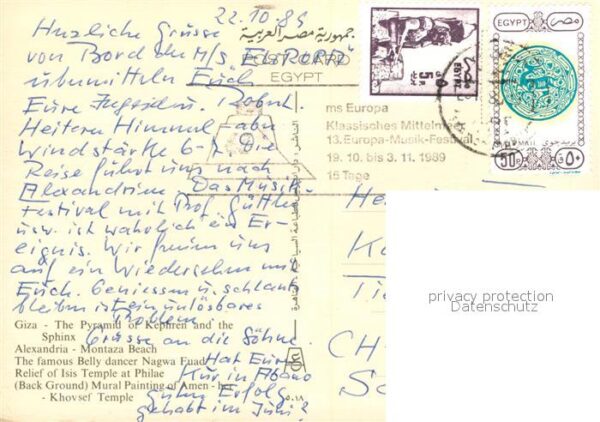 22.10.89
Herzliche Grüsse
von Bord der M/S EUROPA
übermitteln Euch
Eure
Heiterer Himmel aber
Windstärke 6-7. Die
Reise führt uns nach
Alexandrien. Das Musik-
Festival mit Prof. Güttler
usw. ist wahrlich ein Er-
eignis. Wir freuen uns
auf ein Wiedersehen mit
Euch. Geniessen u. schlank
bleiben ist ein unlösbares
Problem
Grüsse an die Söhne.
Hat Eure
Kur in Abano
guten Erfolg
gehabt im Juni?
جمهورية مصر العربية
POST CARD
EGYPT
ms Europa
Klassisches Mittelmeer
13. Europa-Musik-Festival
19. 10. bis 3. 11. 1989
16 Tage
مصر
EGYPT
5
EGYPT مصر
بريد جوى
50p ٥٠ق
CH
privacy protection
Datenschutz
Giza - The Pyramid of Kephren and the
Sphinx
Alexandria - Montaza Beach
The famous Belly dancer Nagwa Fuad
Relief of Isis Temple at Philae
(Back Ground) Mural Painting of Amen - her
- Khovsef Temple
٥٠١٨